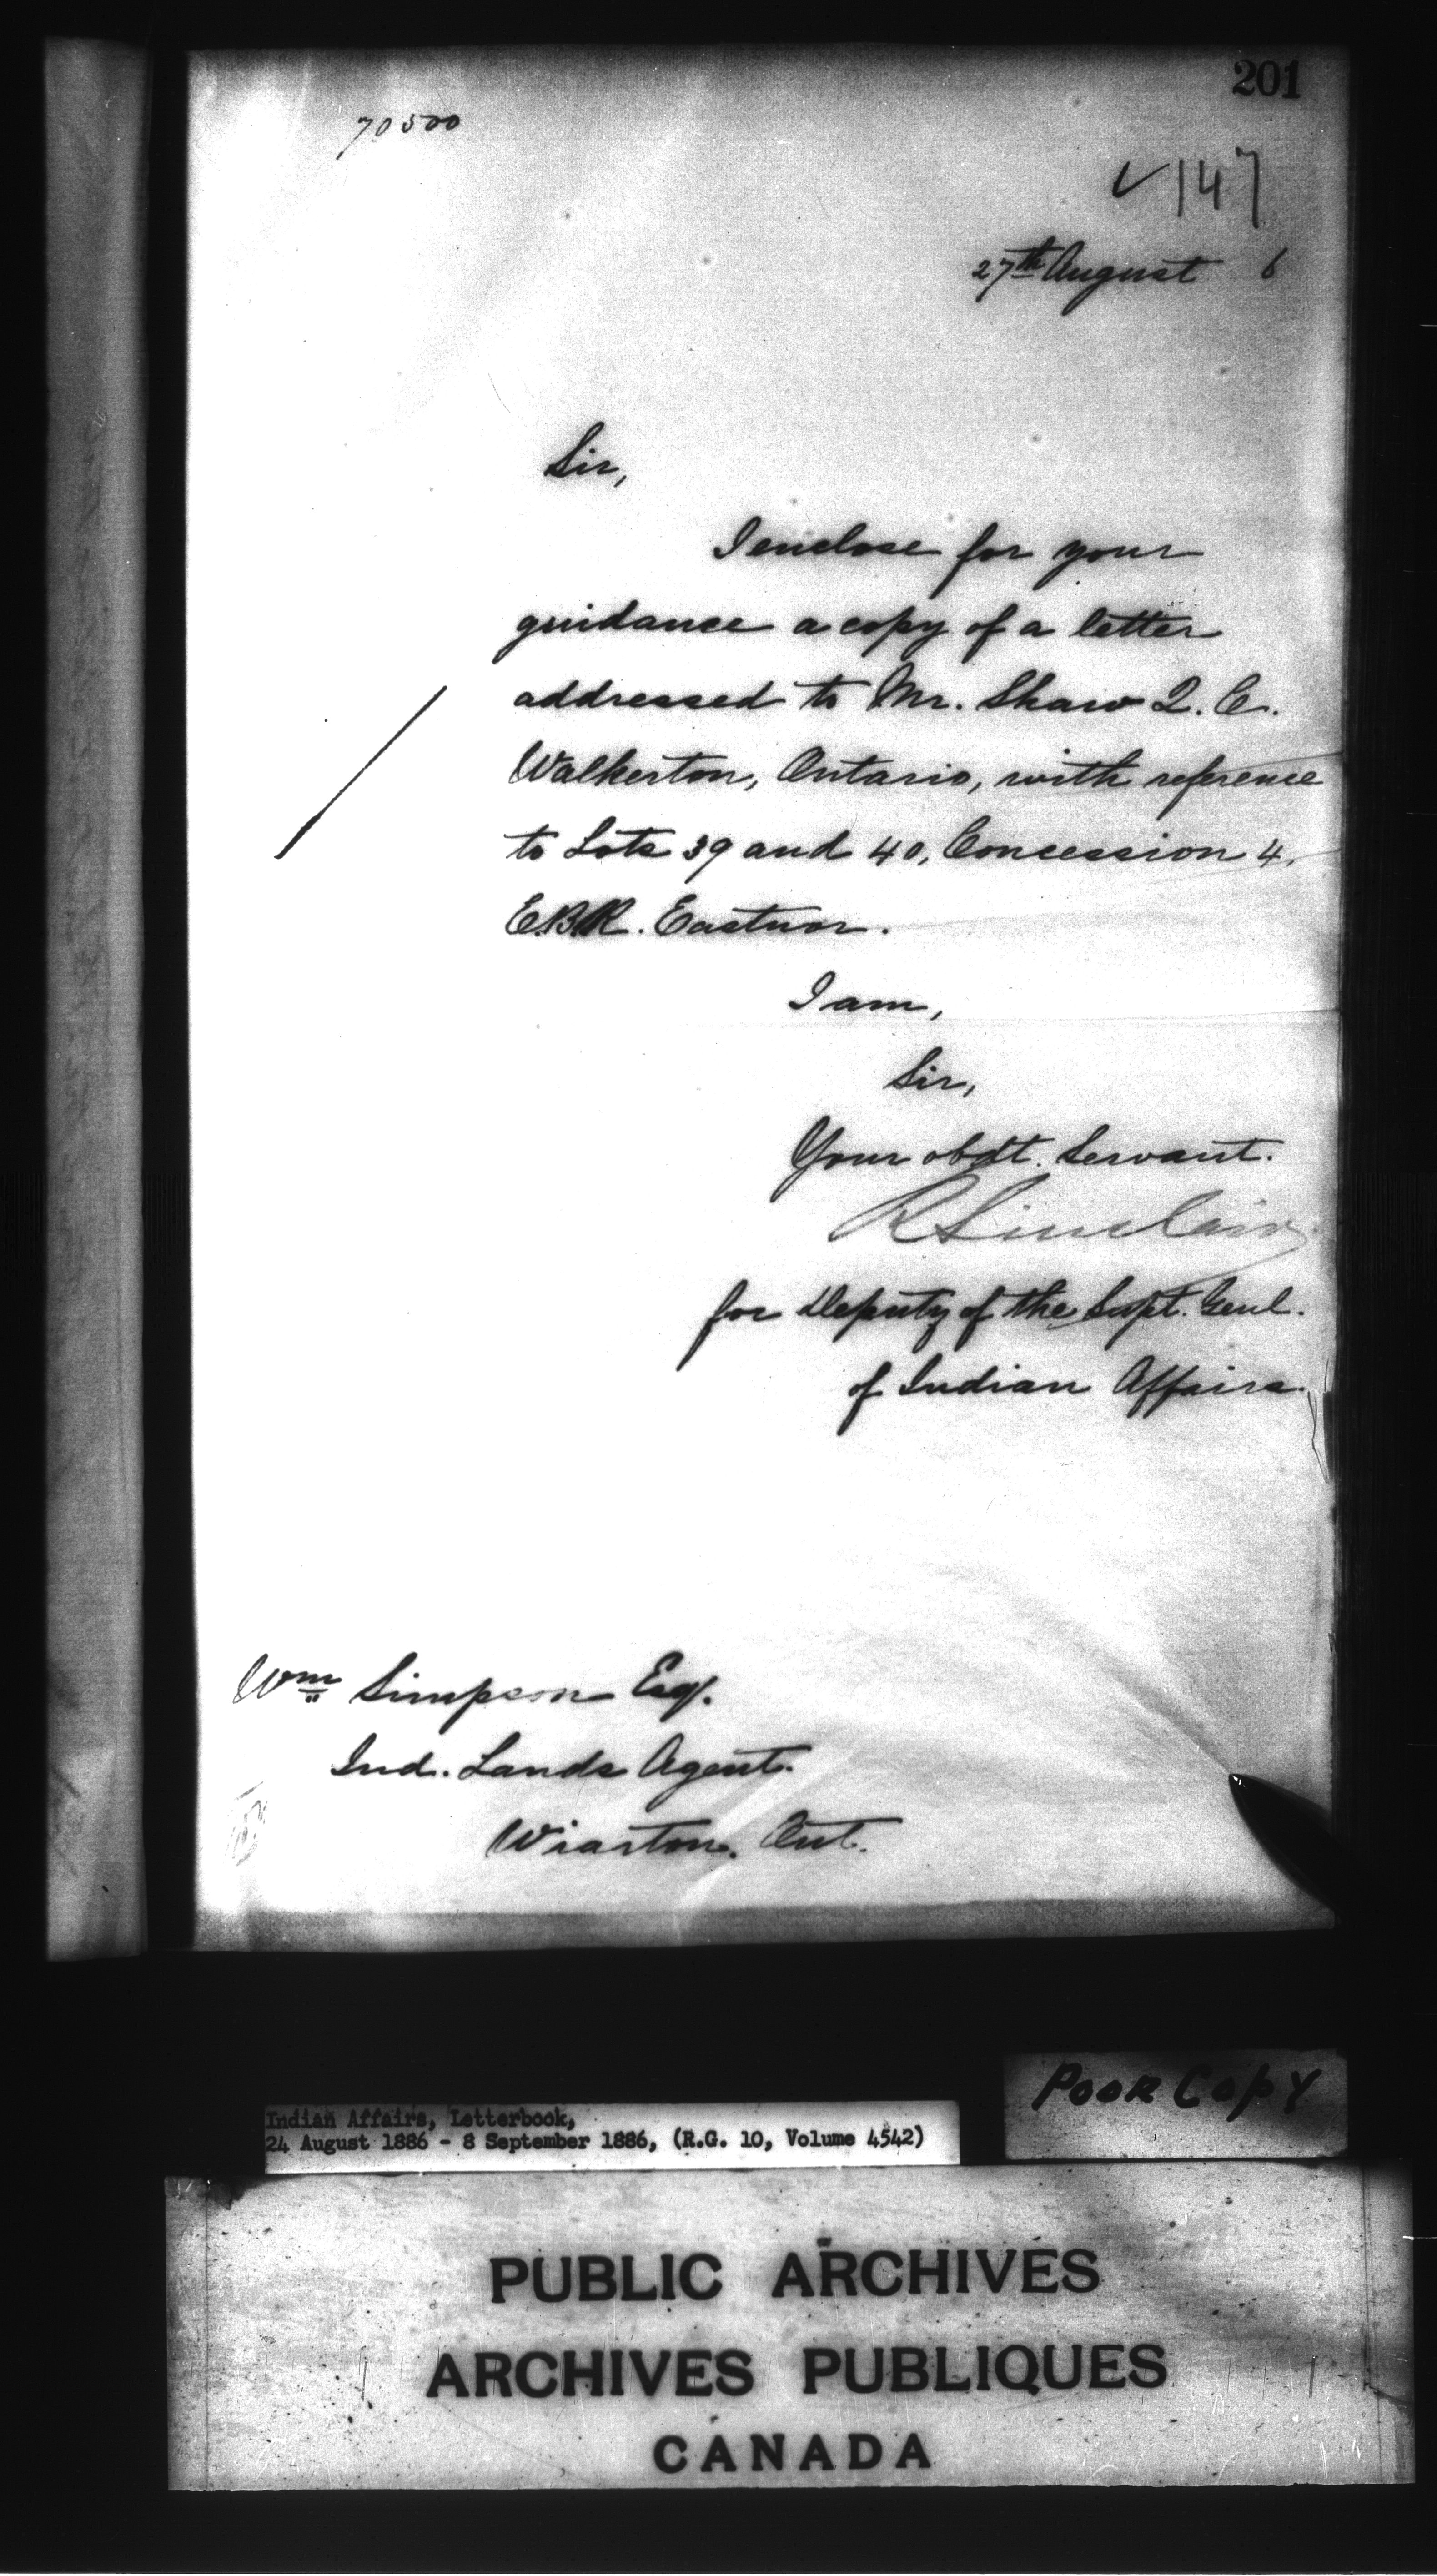 201
70500
✓ 147
27th August 6
Sir,
I enclose for your
guidance a copy of a letter
addressed to Mr. Shaw Q. C.
Walkerton, Ontario, with reference
to Lots 39 and 40, Concession 4.
E.B.R. Eastnor.
I am,
Sir,
Your obdt. Servant.
R Sinclair
for Deputy of the Supt. Genl.
of Indian Affairs.
Wm Simpson Esq.
Ind. Lands Agent.
Wiarton. Ont.
Poor Copy
Indian Affairs, Letterbook,
24 August 1886 - 8 September 1886, (R.G. 10, Volume 4542)
PUBLIC ARCHIVES
ARCHIVES PUBLIQUES
CANADA